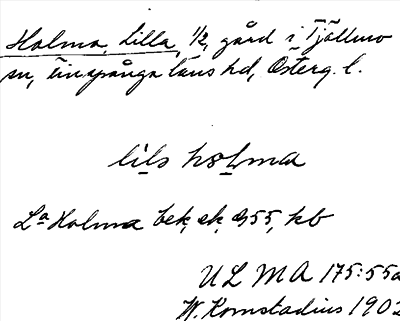 Holma, Lilla, 1/2, gård i Tjällmo
sn, Finspånga läns hd, Österg. l.
lils holma
La Holma bek, ek, 55, kb
ULMA 175:55a
W. Romstadius 1902